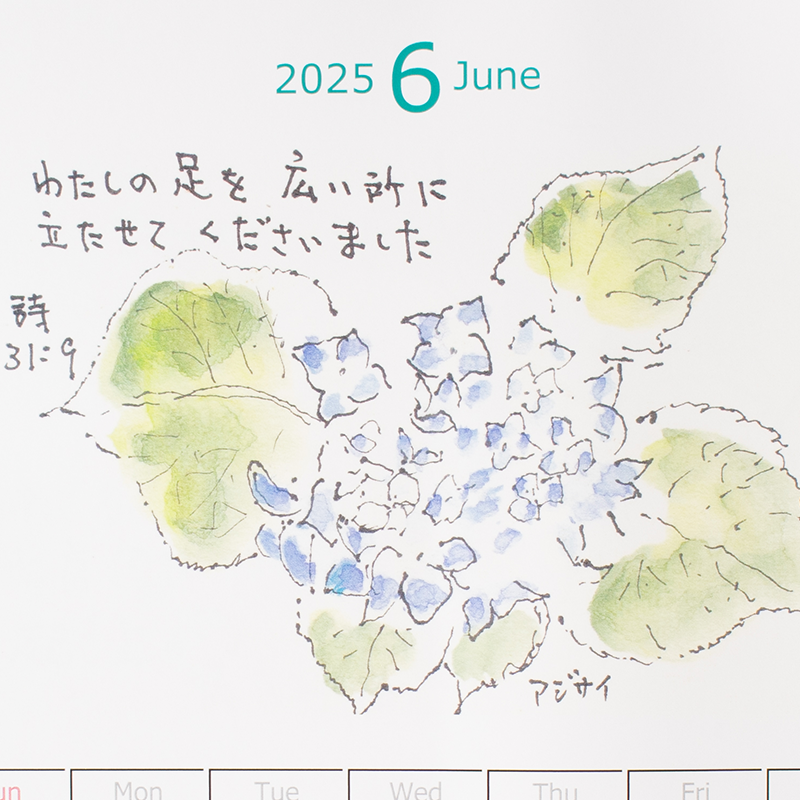 2025 6 June
わたしの足を 広い所に
立たせて くださいました
詩
31:9
アジサイ
un Mon Tue Wed Thu Fri